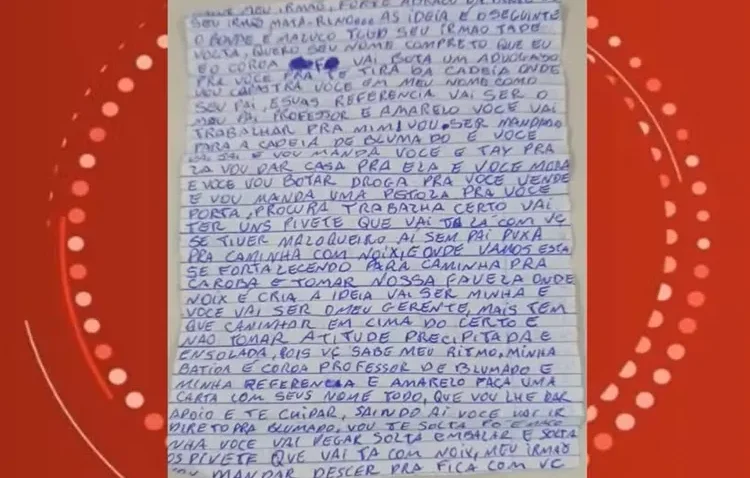 MEU IRMÃO, FORTE ABRAÇO
SEU IRMO MATA-RINDO AS IDEIA E DSEGUINTE
O BONDE E MALUCO TUDO SEU IRMAO TADE
VOLTA, QUERO SEU NOME COMPRETO QUE EU
E O COROA VAI BOTA UM ADVOGADO
PRA VOCE PRA TE TIRA DA CADEIA ONDE
VOU CAPASTRA VOCE EM MEU NOME COMO
SEU PAI, ESUAS REFERENCIA VAI SER O
MEU PAI, PROFESSOR E AMARELO VOCE VAI
TRABALHAR PRA MIM, VOU SER MANDADO
PARA A CADEIA DE BLUMADO E VOCE
VOU MANDA VOCE E TAY PRA
LA VOU DAR CASA PRA ELA E VOCE MORA
E VOCE VOU BOTAR DROGA PRA VOCE VENDE
E VOU MANDA UMA PETOLA PRA VOCE
PORTA, PROCURA TRABALHA CERTO VAI
TER UNS PIVETE QUE VAI TA LÁ COM VC
SE TIVER MALOQUEIRO AI SEM PAI PUXA
PRA CAMINHA COM NOIX, E ONDE VAMOS ESTA
SE FORTALECENDO PARA CAMINHA PRA
CAROBA E TOMAR NOSSA FAVELA ONDE
NOIX E CRIA A IDEIA VAI SER MINHA E
VOCE VAI SER O MEU GERENTE, MAIS TEM
QUE CAMINHAR EM CIMA DO CERTO E
NÃO TOMAR ATITUDE PRECIPITADA E
ENSOLADA, POIS VC SABE MEU RITMO, MINHA
BATIDA E COROA PROFESSOR DE BLUMADO E
MINHA REFERENCIA E AMARELO FAÇA UMA
CARTA COM SEUS NOME TODO, QUE VOU LHE DAR
APOIO E TE CUIPAR, SAINDO AI VOCE VAI IR
DIRETO PRA BLUMADO, VOU TE SOLTA
NHA VOCE VAI PEGAR SOLTA EMBALAR E SOLTA
OS PIVETE QUE VAI TA COM NOIX, MEU IRMÃO
VOU MANDAR DESCER PRA FICA COM VC